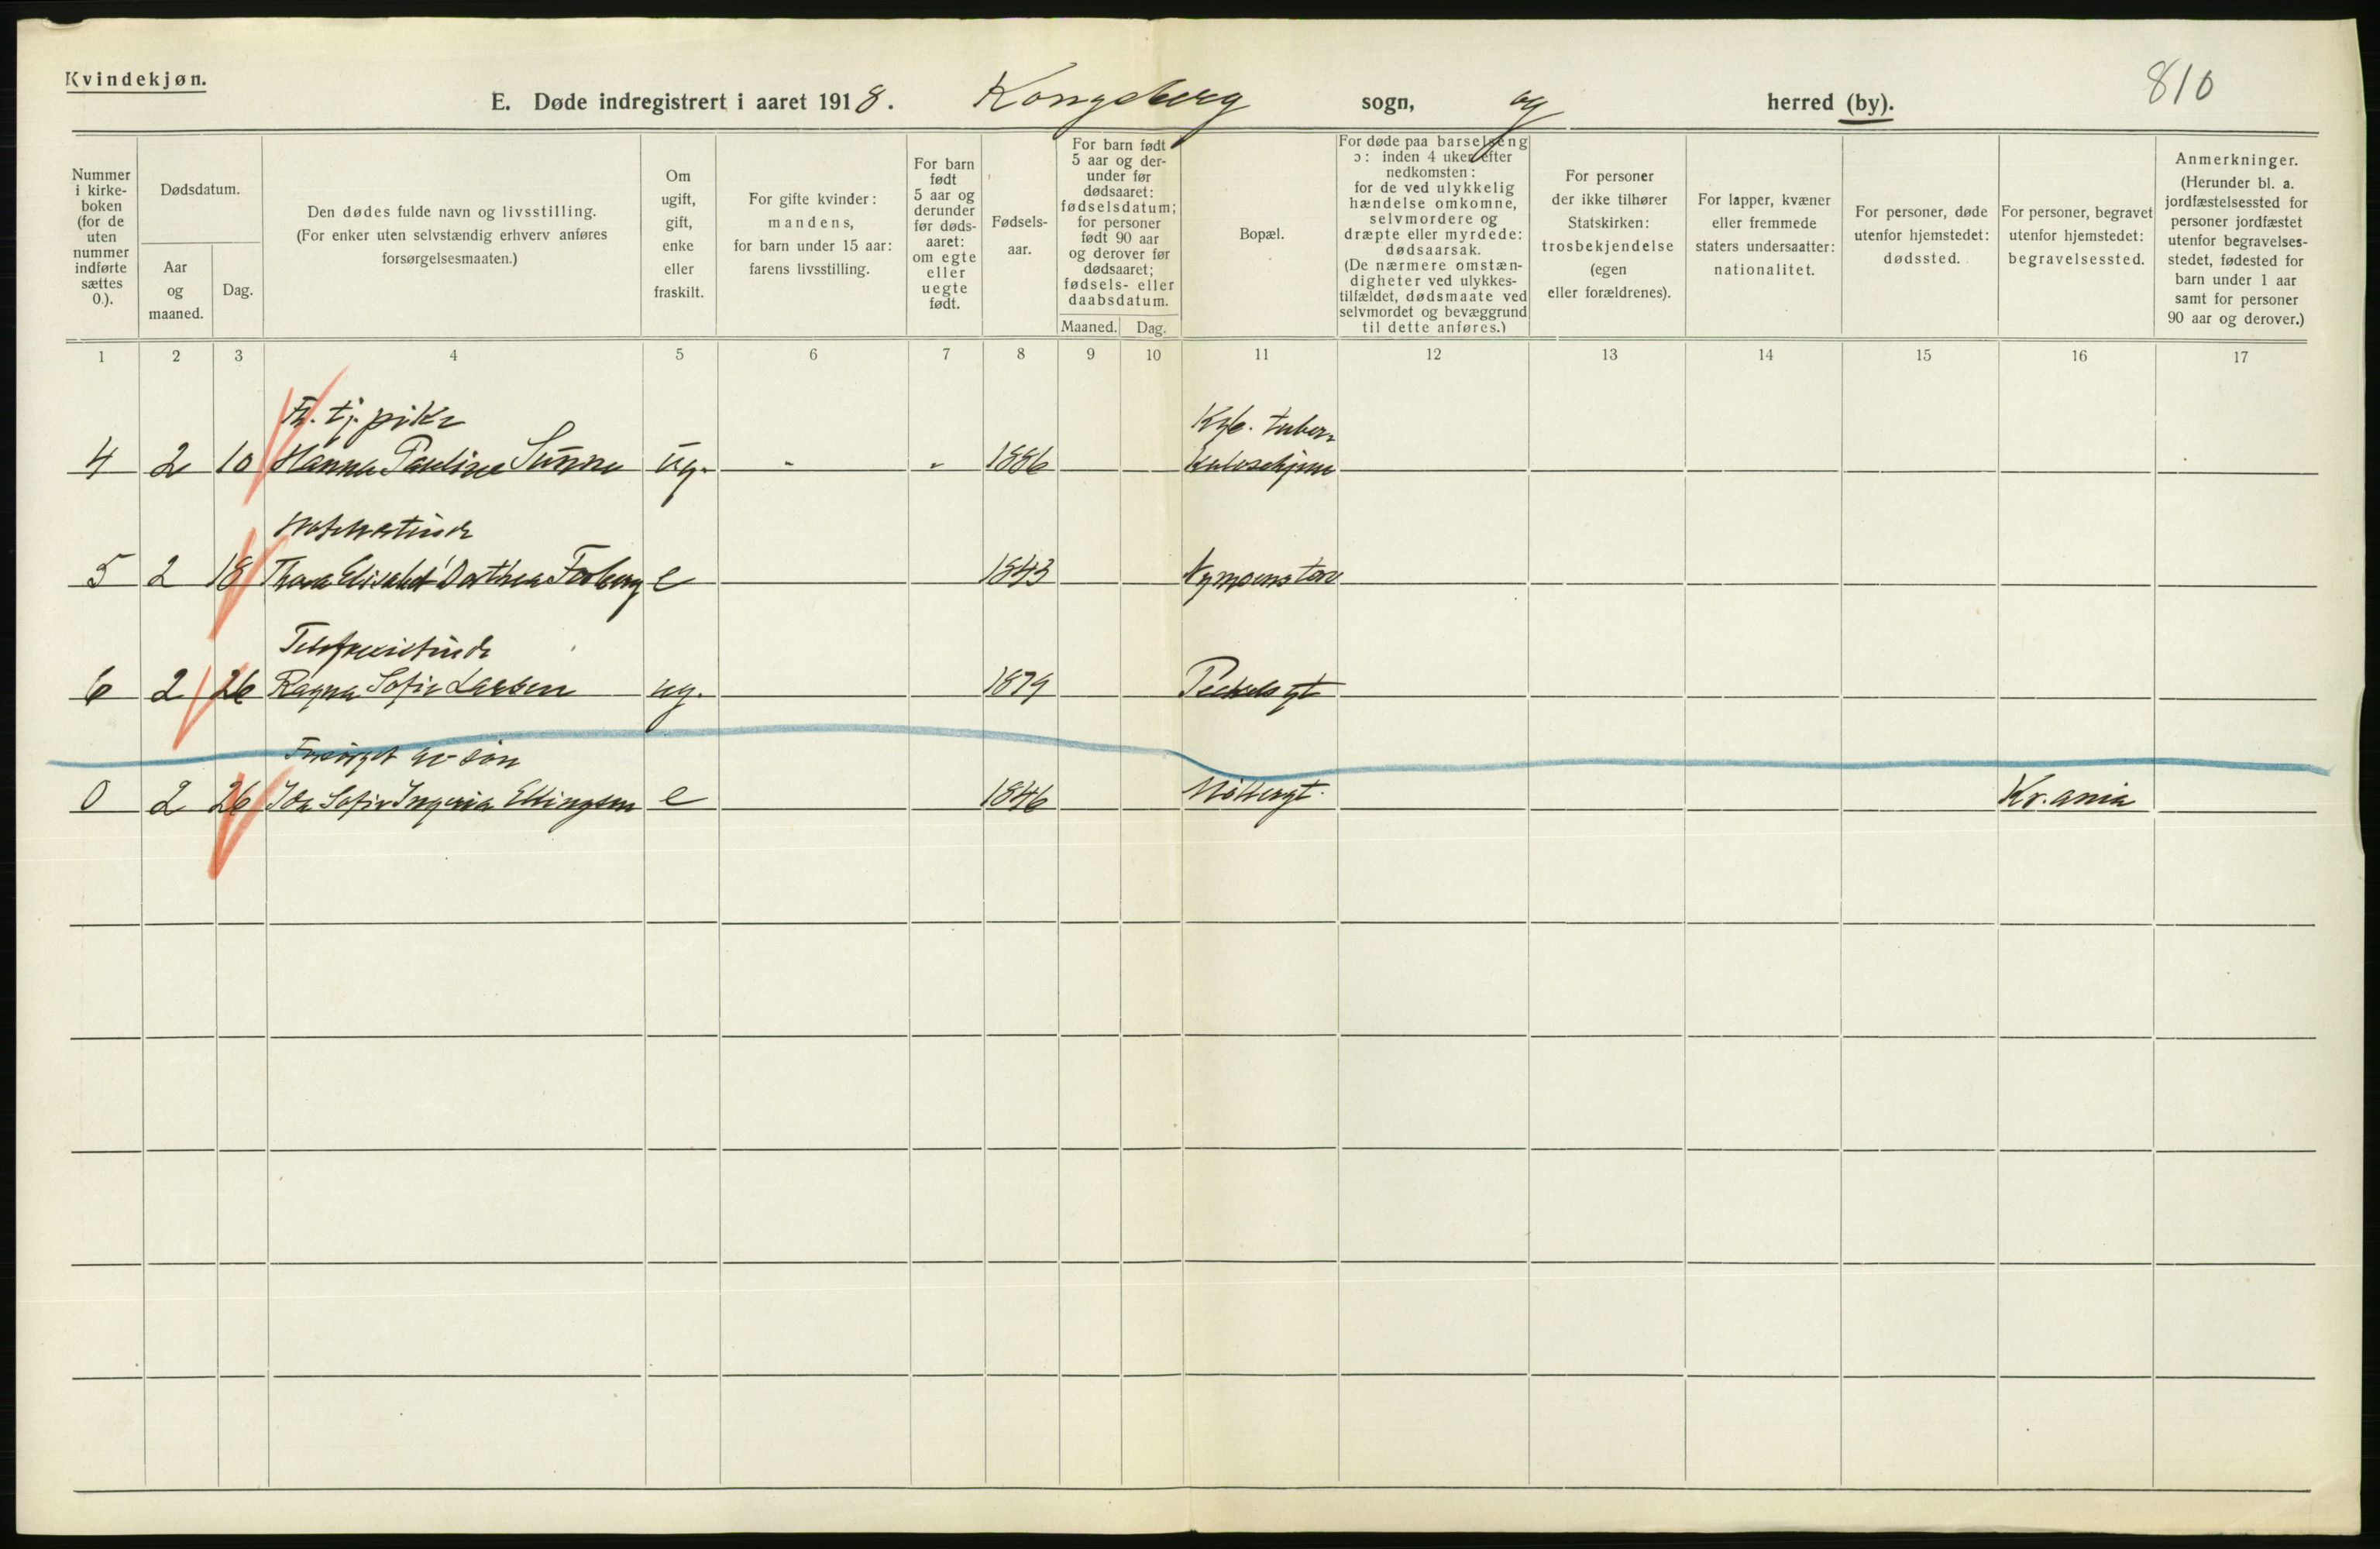 Kvindekjøn.
810
E. Døde indregistrert i aaret 1918. Kongsberg sogn, og herred (by).
Nummer i kirke-boken (for de uten nummer indførte sættes 0.).
Dødsdatum.
Aar og maaned.
Dag.
Den dødes fulde navn og livsstilling.
(For enker uten selvstændig erhverv anføres forsørgelsesmaaten.)
Om ugift, gift, enke eller fraskilt.
For gifte kvinder: mandens, for barn under 15 aar: farens livsstilling.
For barn født 5 aar og derunder før døds-aaret: om egte eller uegte født.
Fødsels-aar.
For barn født 5 aar og der-under før dødsaaret: fødselsdatum; for personer født 90 aar og derover før dødsaaret; fødsels- eller daabsdatum.
Maaned. Dag.
Bopæl.
For døde paa barselseng ɔ: inden 4 uker efter nedkomsten: for de ved ulykkelig hændelse omkomne, selvmordere og dræpte eller myrdede: dødsaarsak.
(De nærmere omstæn-digheter ved ulykkes-tilfældet, dødsmaate ved selvmordet og bevæggrund til dette anføres.)
For personer der ikke tilhører Statskirken: trosbekjendelse (egen eller forældrenes).
For lapper, kvæner eller fremmede staters undersaatter: nationalitet.
For personer, døde utenfor hjemstedet: dødssted.
For personer, begravet utenfor hjemstedet: begravelsessted.
Anmerkninger.
(Herunder bl. a. jordfæstelsessted for personer jordfæstet utenfor begravelses-stedet, fødested for barn under 1 aar samt for personer 90 aar og derover.)
1 2 3 4 5 6 7 8 9 10 11 12 13 14 15 16 17
Fh. tj. pike Kgb. tuber-
4 2 10 Hanna Pauline Sunne ug. - - 1886 kulosehjem
5 2 18 Thora Elisabet Dorthea Foberg e 1843 Nymoens torv
Telefonistinde
6 2 26 Ragna Sofie Larsen ug. 1879 Peckelsgt
Forsørget av søn
0 2 26 Ida Sofie Ingeria Ellingsen e 1846 Møllergt. Kr.ania